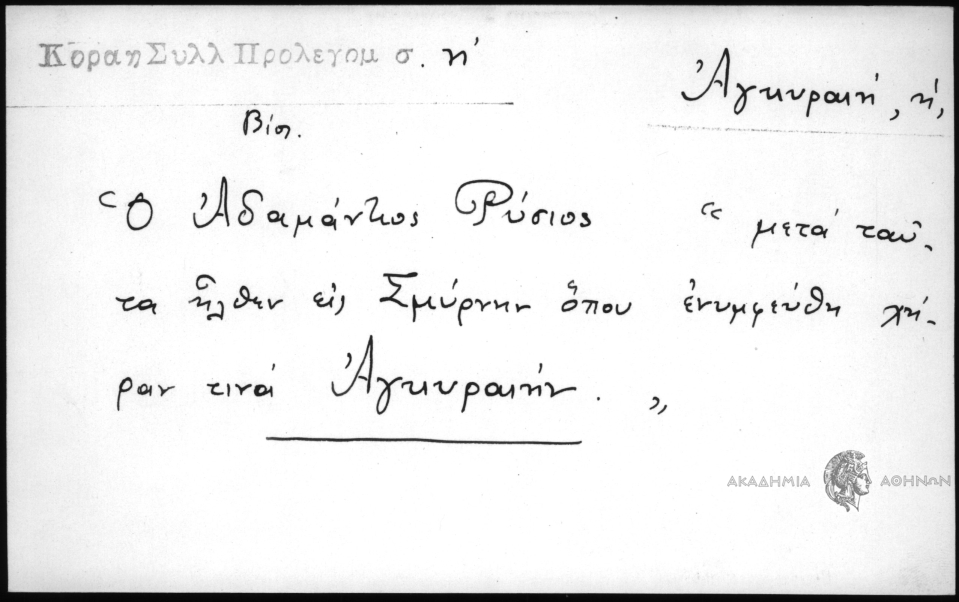 Κοραη Συλλ Προλεγομ σ. η'
Ἀγκυραιή, ἡ,
Βίος.
Ὁ Ἀδαμάντιος Ῥύσιος “μετὰ ταῦ-
τα ἦλθεν εἰς Σμύρνην ὅπου ἐνυμφεύθη χή-
ραν τινά Ἀγκυραιήν. „
ΑΚΑΔΗΜΙΑ ΑΘΗΝΩΝ